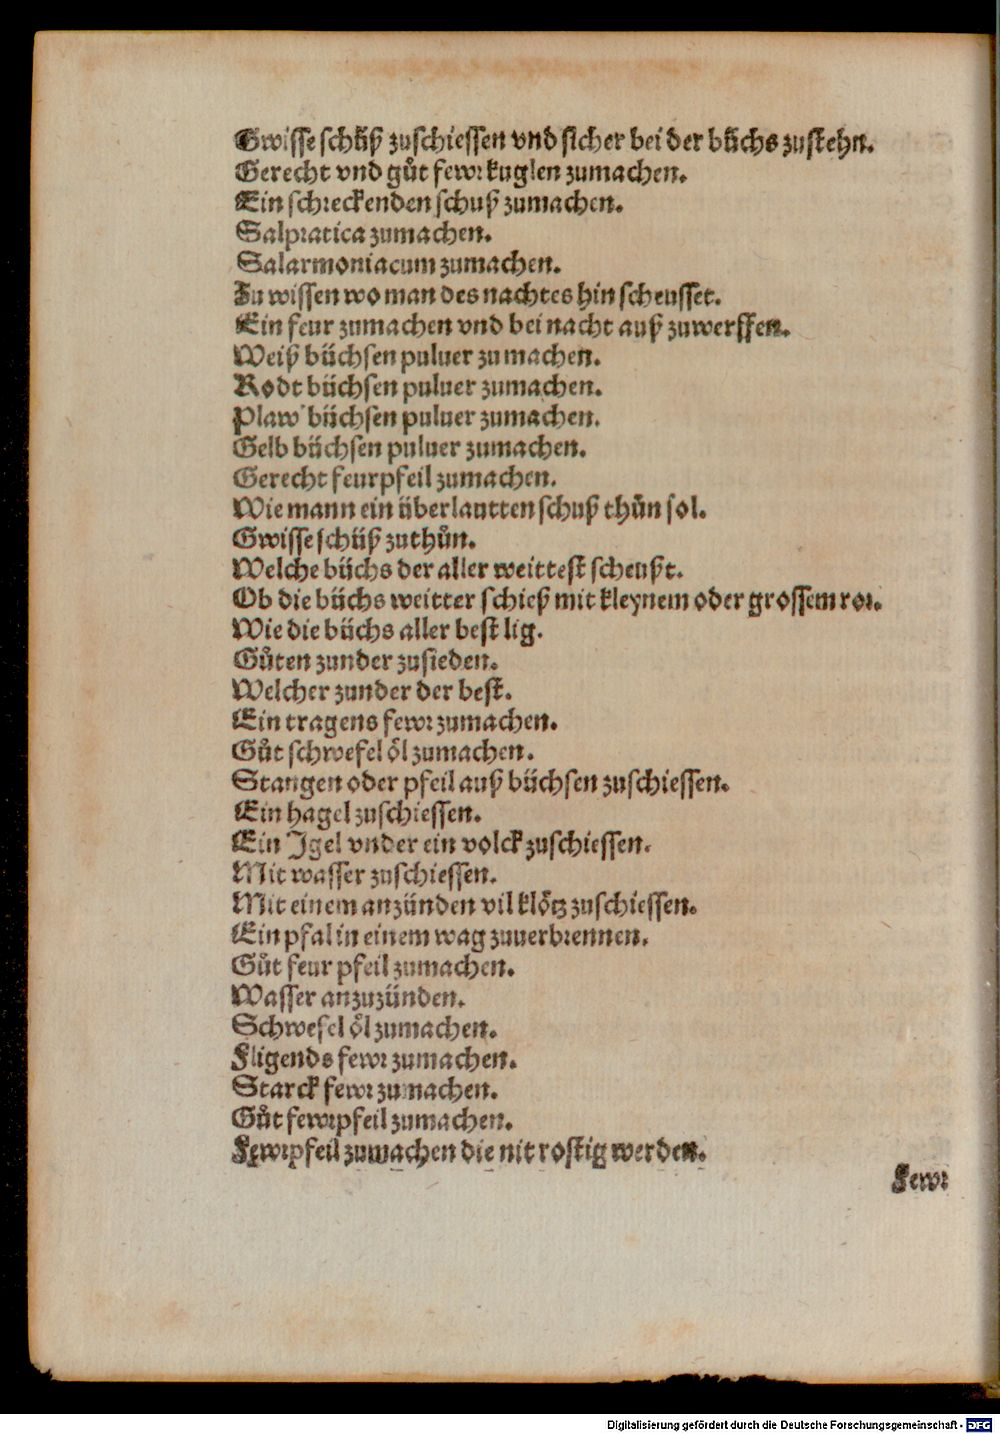 Gwisse schüß zuschiessen vnd sicher bei der büchs zustehn.
Gerecht vnd gůt fewr kuglen zumachen.
Ein schreckenden schuß zumachen.
Salpratica zumachen.
Salarmoniacum zumachen.
Zu wissen wo man des nachtes hin scheusset.
Ein feur zumachen vnd bei nacht auß zuwerffen.
Weiß büchsen puluer zu machen.
Rodt büchsen puluer zumachen.
Plaw büchsen puluer zumachen.
Gelb büchsen puluer zumachen.
Gerecht feurpfeil zumachen.
Wie mann ein überlautten schuß thůn sol.
Gwisse schüß zuthůn.
Welche büchs der aller weittest scheußt.
Ob die büchs weitter schieß mit kleynem oder grossem ror.
Wie die büchs aller best lig.
Gůten zunder zusieden.
Welcher zunder der best.
Ein tragens fewr zumachen.
Gůt schwefel öl zumachen.
Stangen oder pfeil auß büchsen zuschiessen.
Ein hagel zuschiessen.
Ein Jgel vnder ein volck zuschiessen.
Mit wasser zuschiessen.
Mit einem anzünden vil klötz zuschiessen.
Ein pfal in einem wag zuuerbrennen.
Gůt feur pfeil zumachen.
Wasser anzuzünden.
Schwefel öl zumachen.
Fligends fewr zumachen.
Starck fewr zumachen.
Gůt fewrpfeil zumachen.
Fewrpfeil zumachen die nit rostig werden.
Fewr
Digitalisierung gefördert durch die Deutsche Forschungsgemeinschaft - DFG